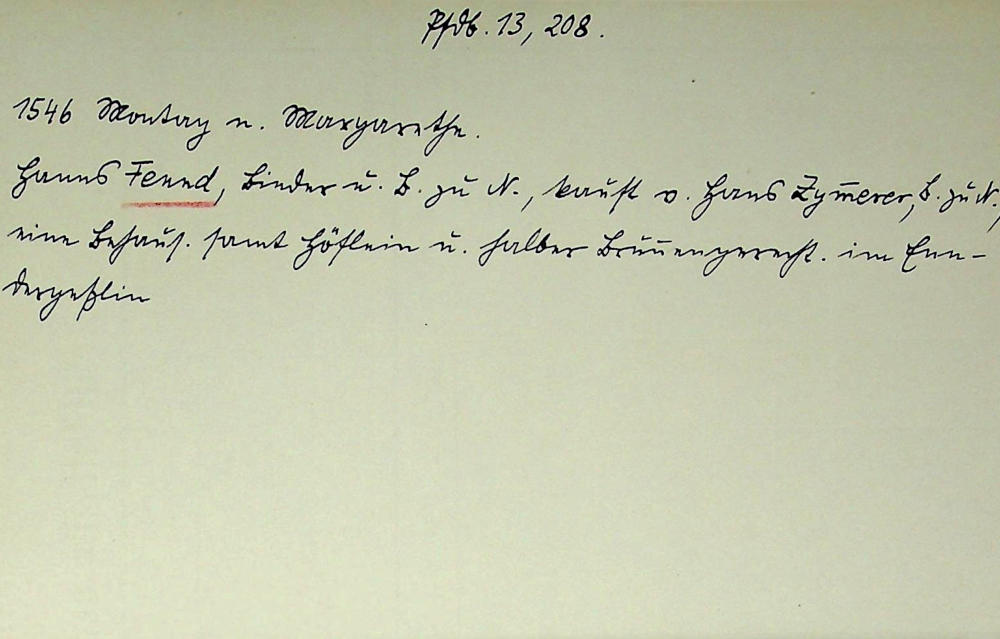 Pfdb. 13, 208.
1546 Montag n. Margarethe.
Hanns Fennd, Binder u. B. zu N., kauft v. Hans Zym̄erer, B. zu N.,
eine Behaus. samt Höflein u. halber Brun̄engerecht. im Enn-
dergeßlin